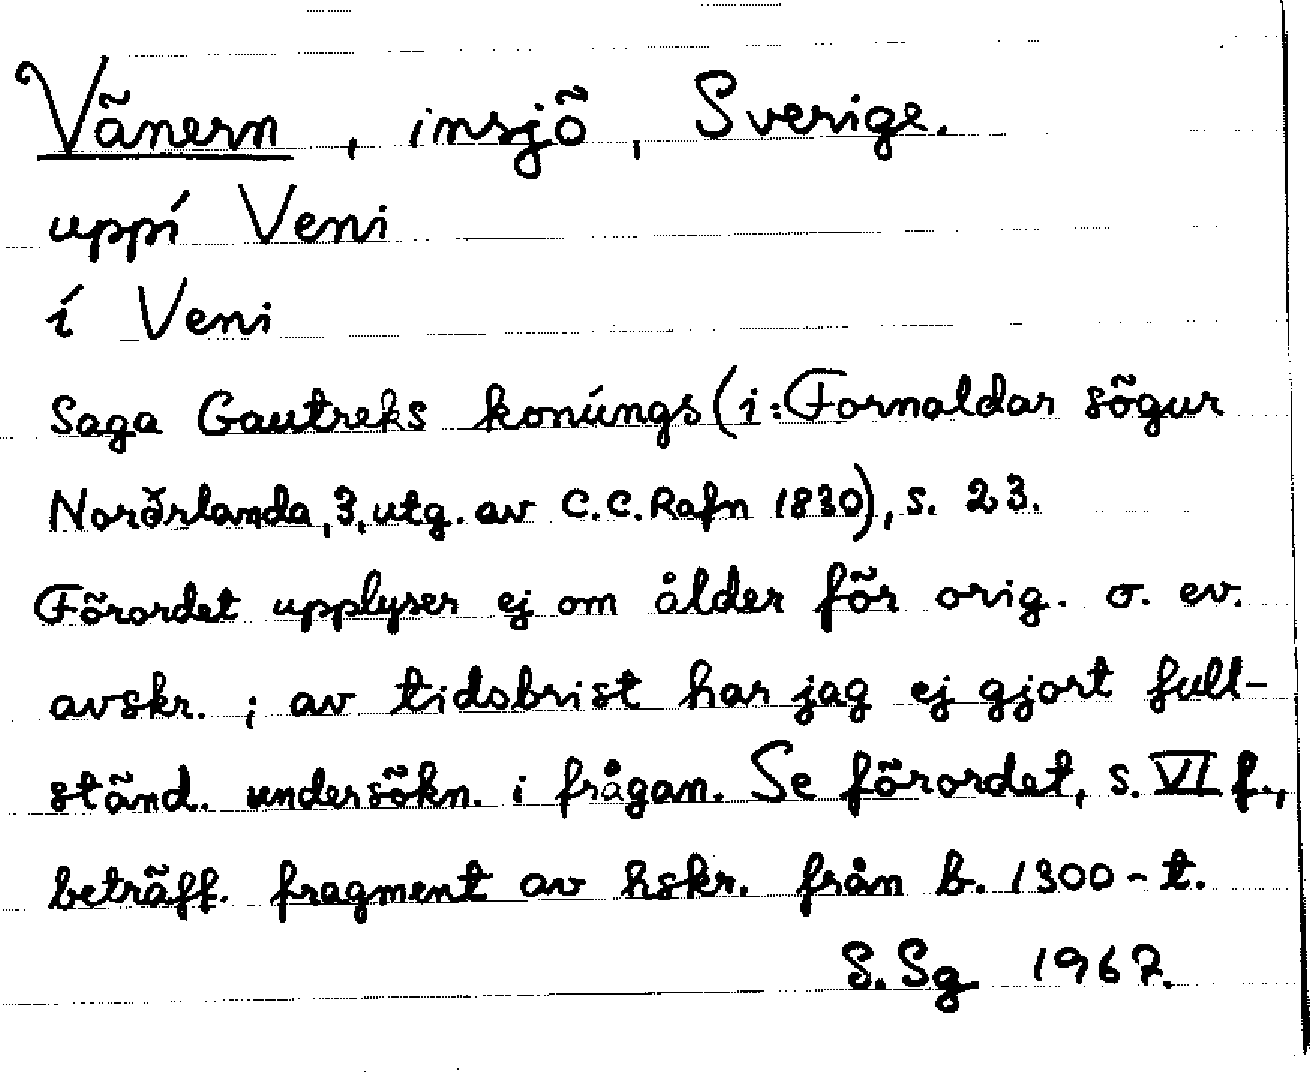 Vänern, insjö, Sverige.
uppí Veni
í Veni
Saga Gautreks konúngs (i: Fornaldar sögur
Norðrlanda, 3, utg. av C.C. Rafn 1830), s. 23.
Förordet upplyser ej om ålder för orig. o. ev.
avskr.; av tidsbrist har jag ej gjort full-
ständ. undersökn. i frågan. Se förordet, s. VI f.,
beträff. fragment av hskr. från b. 1300-t.
S. Sg 1967.